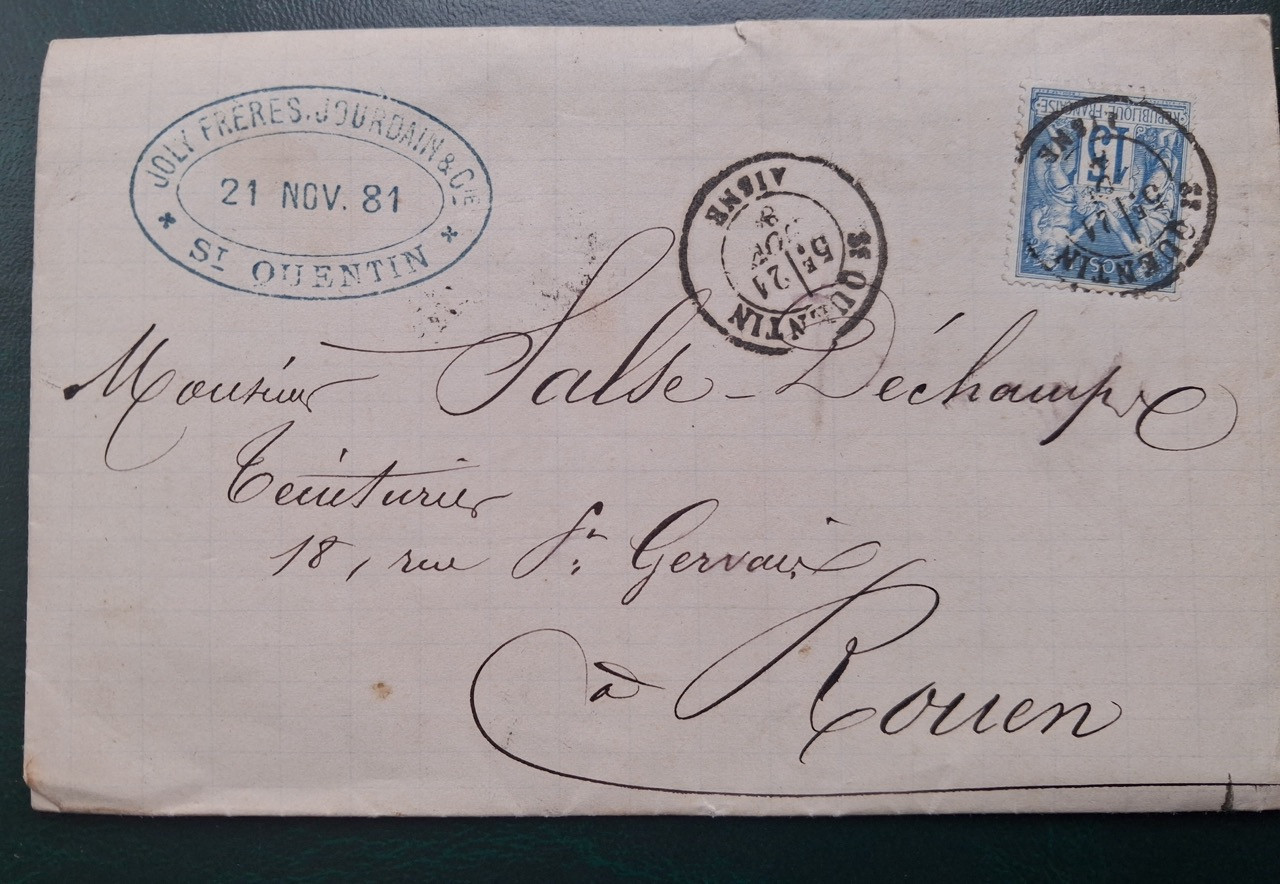 JOLY FRÈRES, JOURDAIN & CIE
21 NOV. 81
ST QUENTIN
ST QUENTIN
5E
21
NOV
AISNE
RÉPUBLIQUE FRANÇAISE
15
ST QUENTIN
5E
21
AISNE
Monsieur Salse-Déchamps
Teinturier
18, rue St. Gervais
à Rouen